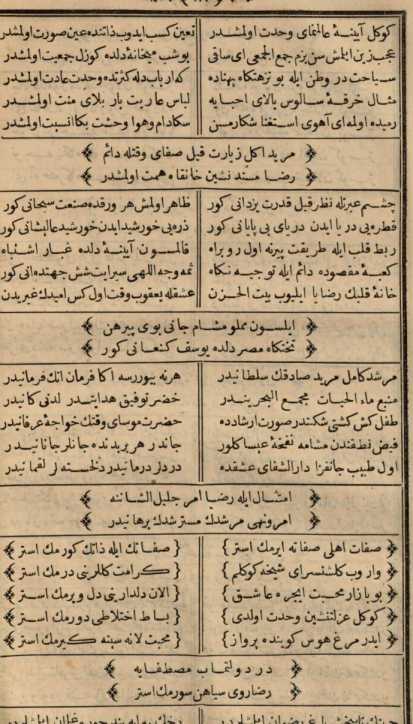 كوكل آيينهٔ عالمنماى وحدت اولمشدر
تعين كسب ايدوب ذاتنده عين صورت اولمشدر
عجب زين ايلمش سن بزم جمع الجمعى اى ساقى
بو شب ميخانهٔ دلده كوزل جمعيت اولمشدر
سياحت در وطن ايله بو نزهتكاه پهناده
كه ارباب دله كثرتده وحدت عادت اولمشدر
مثال خرقهٔ سالوس بالاى احبايه
لباس عاريت بار بلاى منت اولمشدر
رميده اولمه اى آهوى استغنا شكارمسن
سكا دام وهوا وحشت بكا انسيت اولمشدر
مريد اكل زيارت قبل صفاى وقتله دائم
رضا مسند نشين خانقاه همت اولمشدر
چشم عبرتله نظر قيل قدرت يزدانى كور
ظاهر اولمش هر ورقده صنعت سبحانى كور
قطره يى دريا ايدن درياى بى پايانى كور
ذره يى خورشيد ايدن خورشيد عاليشانى كور
ربط قلب ايله طريقت پيرينه اول روبراه
قالمسون آيينهٔ دلده غبار اشتباه
كعبهٔ مقصوده دائم ايله توجيه نكاه
ثمه وجه اللهى سير ايت شش جهتده آنى كور
خانهٔ قلبك رضايا ايليوب بيت الحزن
عشقله يعقوب وقت اول كس اميدك غيريدن
ايلسون مملو مشام جانى بوى پيرهن
تختكاه مصر دلده يوسف كنعانى كور
مرشد كامل مريد صادقك سلطانيدر
هرنه بيوررسه اكا فرمان انك فرمانيدر
منبع ماء الحيات مجمع البحريندر
خضر توفيق هدايتدر لدنى كانيدر
طفل كش كشتى شكندر صورت ارشادده
حضرت موساى وقتك خواجهٔ عرفانيدر
فيض نطقندن مشامه نفخهٔ عيسا كلور
جاندر هر يرنده جانلر جانانيدر
اول طبيب جانفزا دار الشفاى عشقده
درد لر درمانيدر دلخسته لر لقمانيدر
امتثال ايله رضا امر جليل الشاننه
امر ونهى مرشدك مسترشدك برهانيدر
صفات اهلى صفاته ايرمك استر
صفاتك ايله ذاتك كورمك استر
واروب كلشنسراى شيخه كوكلم
كرامت كللرينى درمك استر
بو بازار محبت ايچره عاشق
الان دلدارينى دل ويرمك استر
كوكل عزلتنشين وحدت اولدى
بساط اختلاطى دورمك استر
ايدر مرغ هوس كوينده پرواز
محبت لانه سينه كيرمك استر
در دولتمآب مصطفايه
رضا روى سياهن سورمك استر